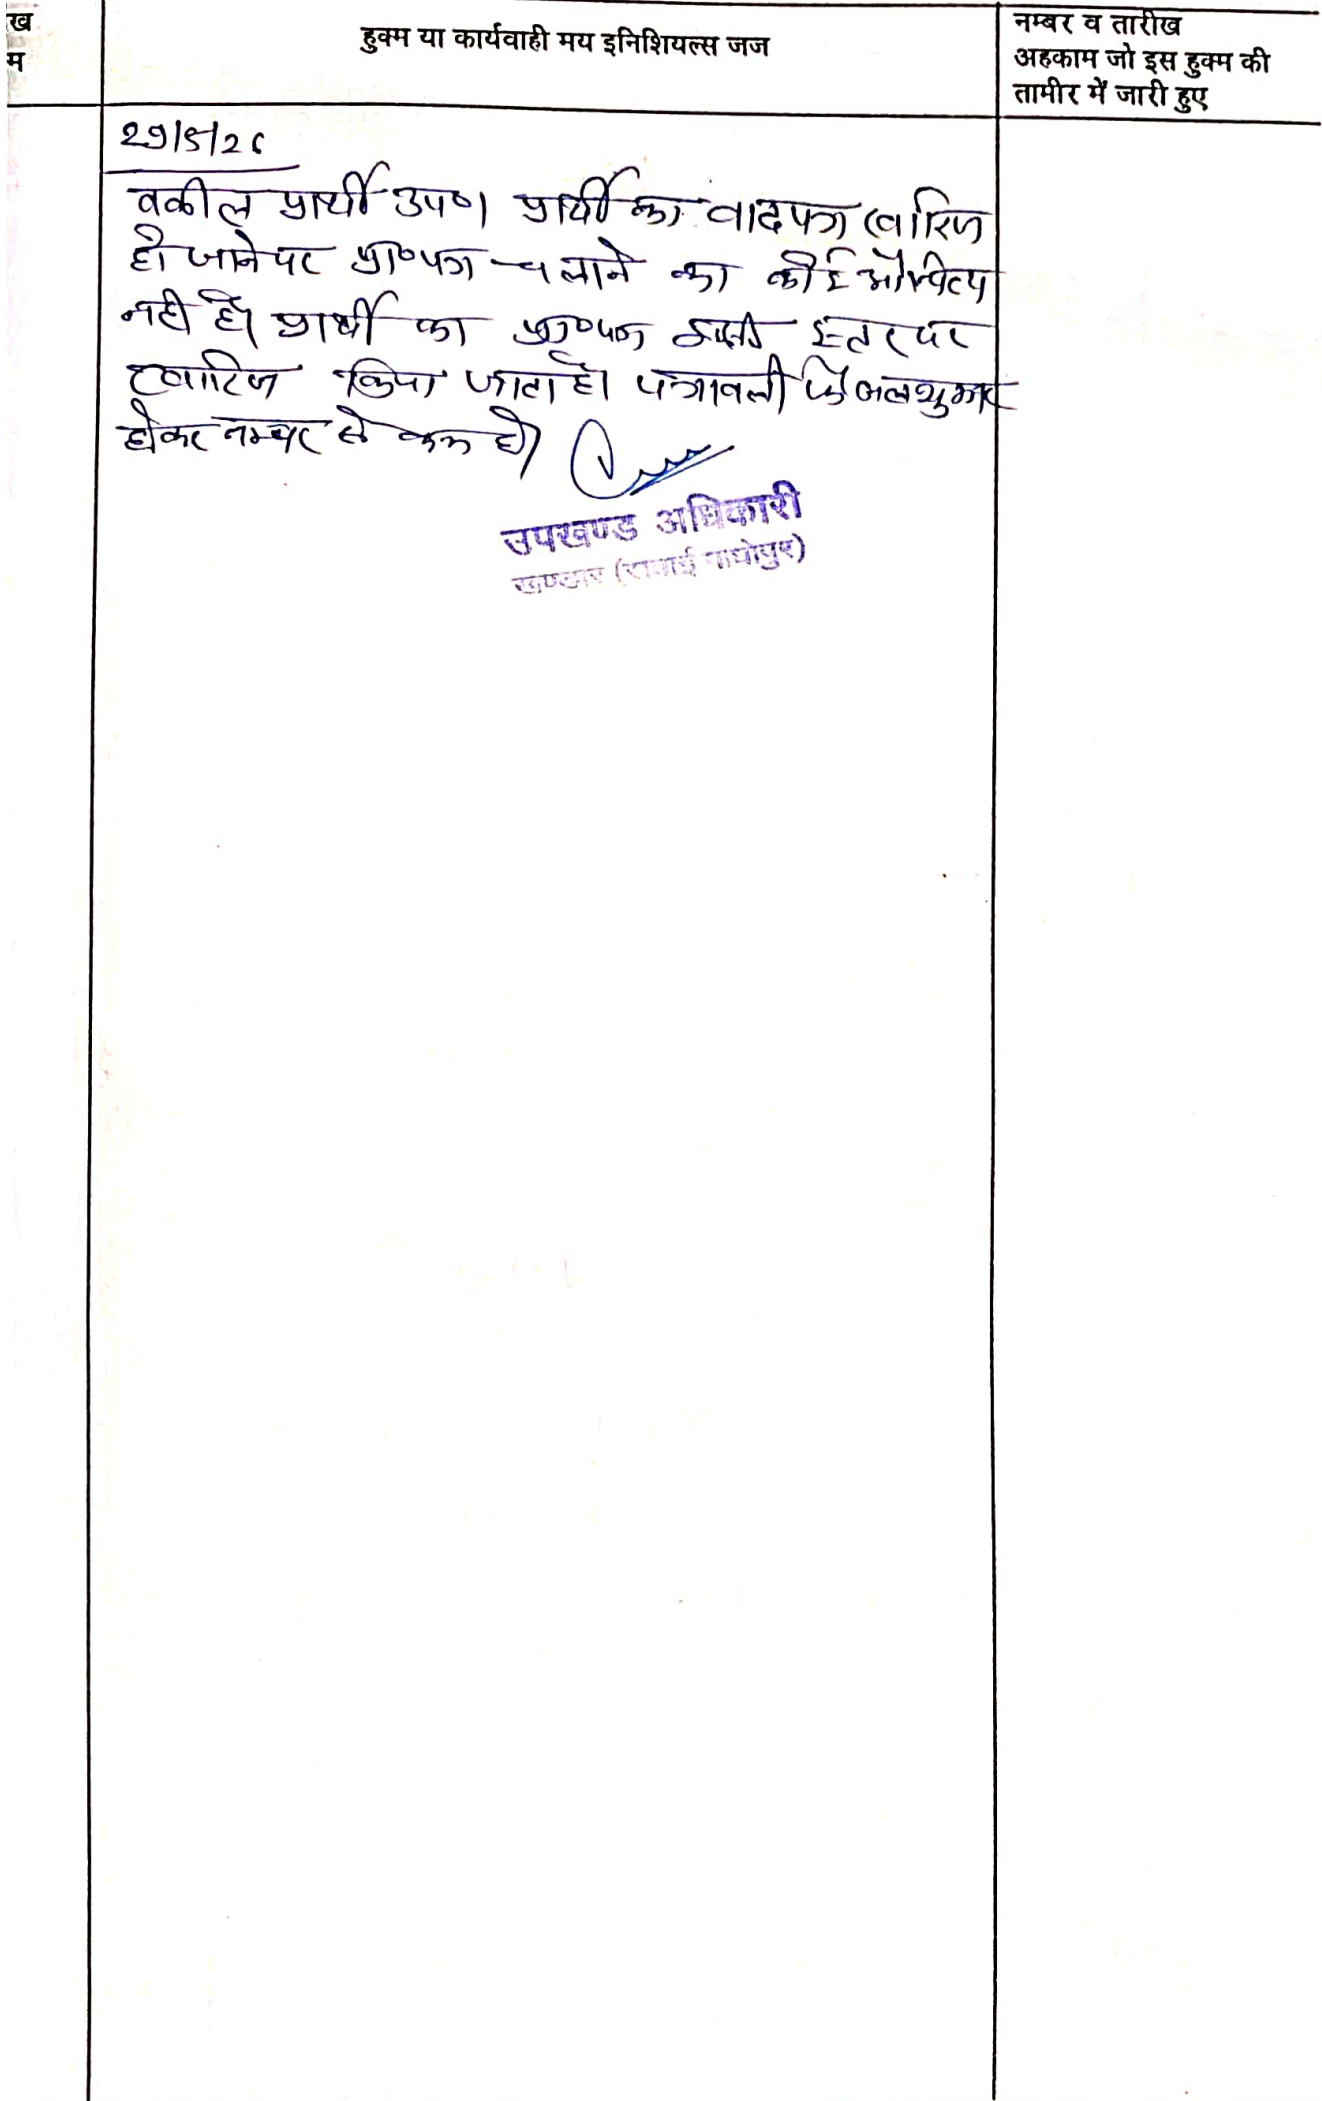 ख
म
हुक्म या कार्यवाही मय इनिशियल्स जज
नम्बर व तारीख
अहकाम जो इस हुक्म की
तामीर में जारी हुए
29/5/26
वकील प्रार्थी उप०। प्रार्थी का वादपत्र खारिज
हो जाने पर प्रा०पत्र चलाने का कोई औचित्य
नही है। प्रार्थी का प्रा०पत्र इसी स्तर पर
खारिज किया जाता है। पत्रावली फैसलशुमार
होकर नम्बर से कम हो।
उपखण्ड अधिकारी
खण्डार (सवाई माधोपुर)